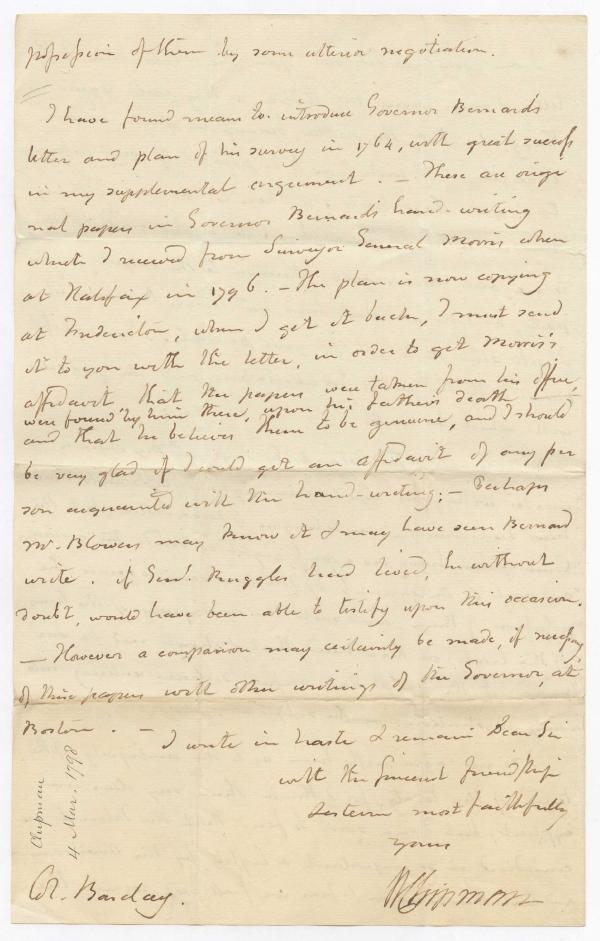 possession of them by some ulterior negotiation.
I have found means to introduce Governor Bernard's
letter and plan of his survey in 1764, with great success
in my supplemental argument. — These are origi
nal papers in Governor Bernard's hand-writing
which I received from Surveyor General Morris when
at Halifax in 1796. — The plan is now copying
at Fredericton, when I get it back, I must send
it to you with the letter, in order to get Morris's
affidavit that the papers were taken from his office,
were found by him there, upon his father's death
and that he believes them to be genuine, and I should
be very glad if I could get an affidavit of any per
son acquainted with the hand-writing; — Perhaps
Mr. Blowers may know it & may have seen Bernard
write. if Genl. Ruggles had lived, he without
doubt, would have been able to testify upon this occasion.
— However a comparison may certainly be made, if necessary
of these papers with other writings of the Governor, at
Boston. —
I write in haste & remain Dear Sir
with the sincerest friendship
& esteem most faithfully
yours
W Chipman
Col. Barclay.
Chipman
4 Mar. 1798